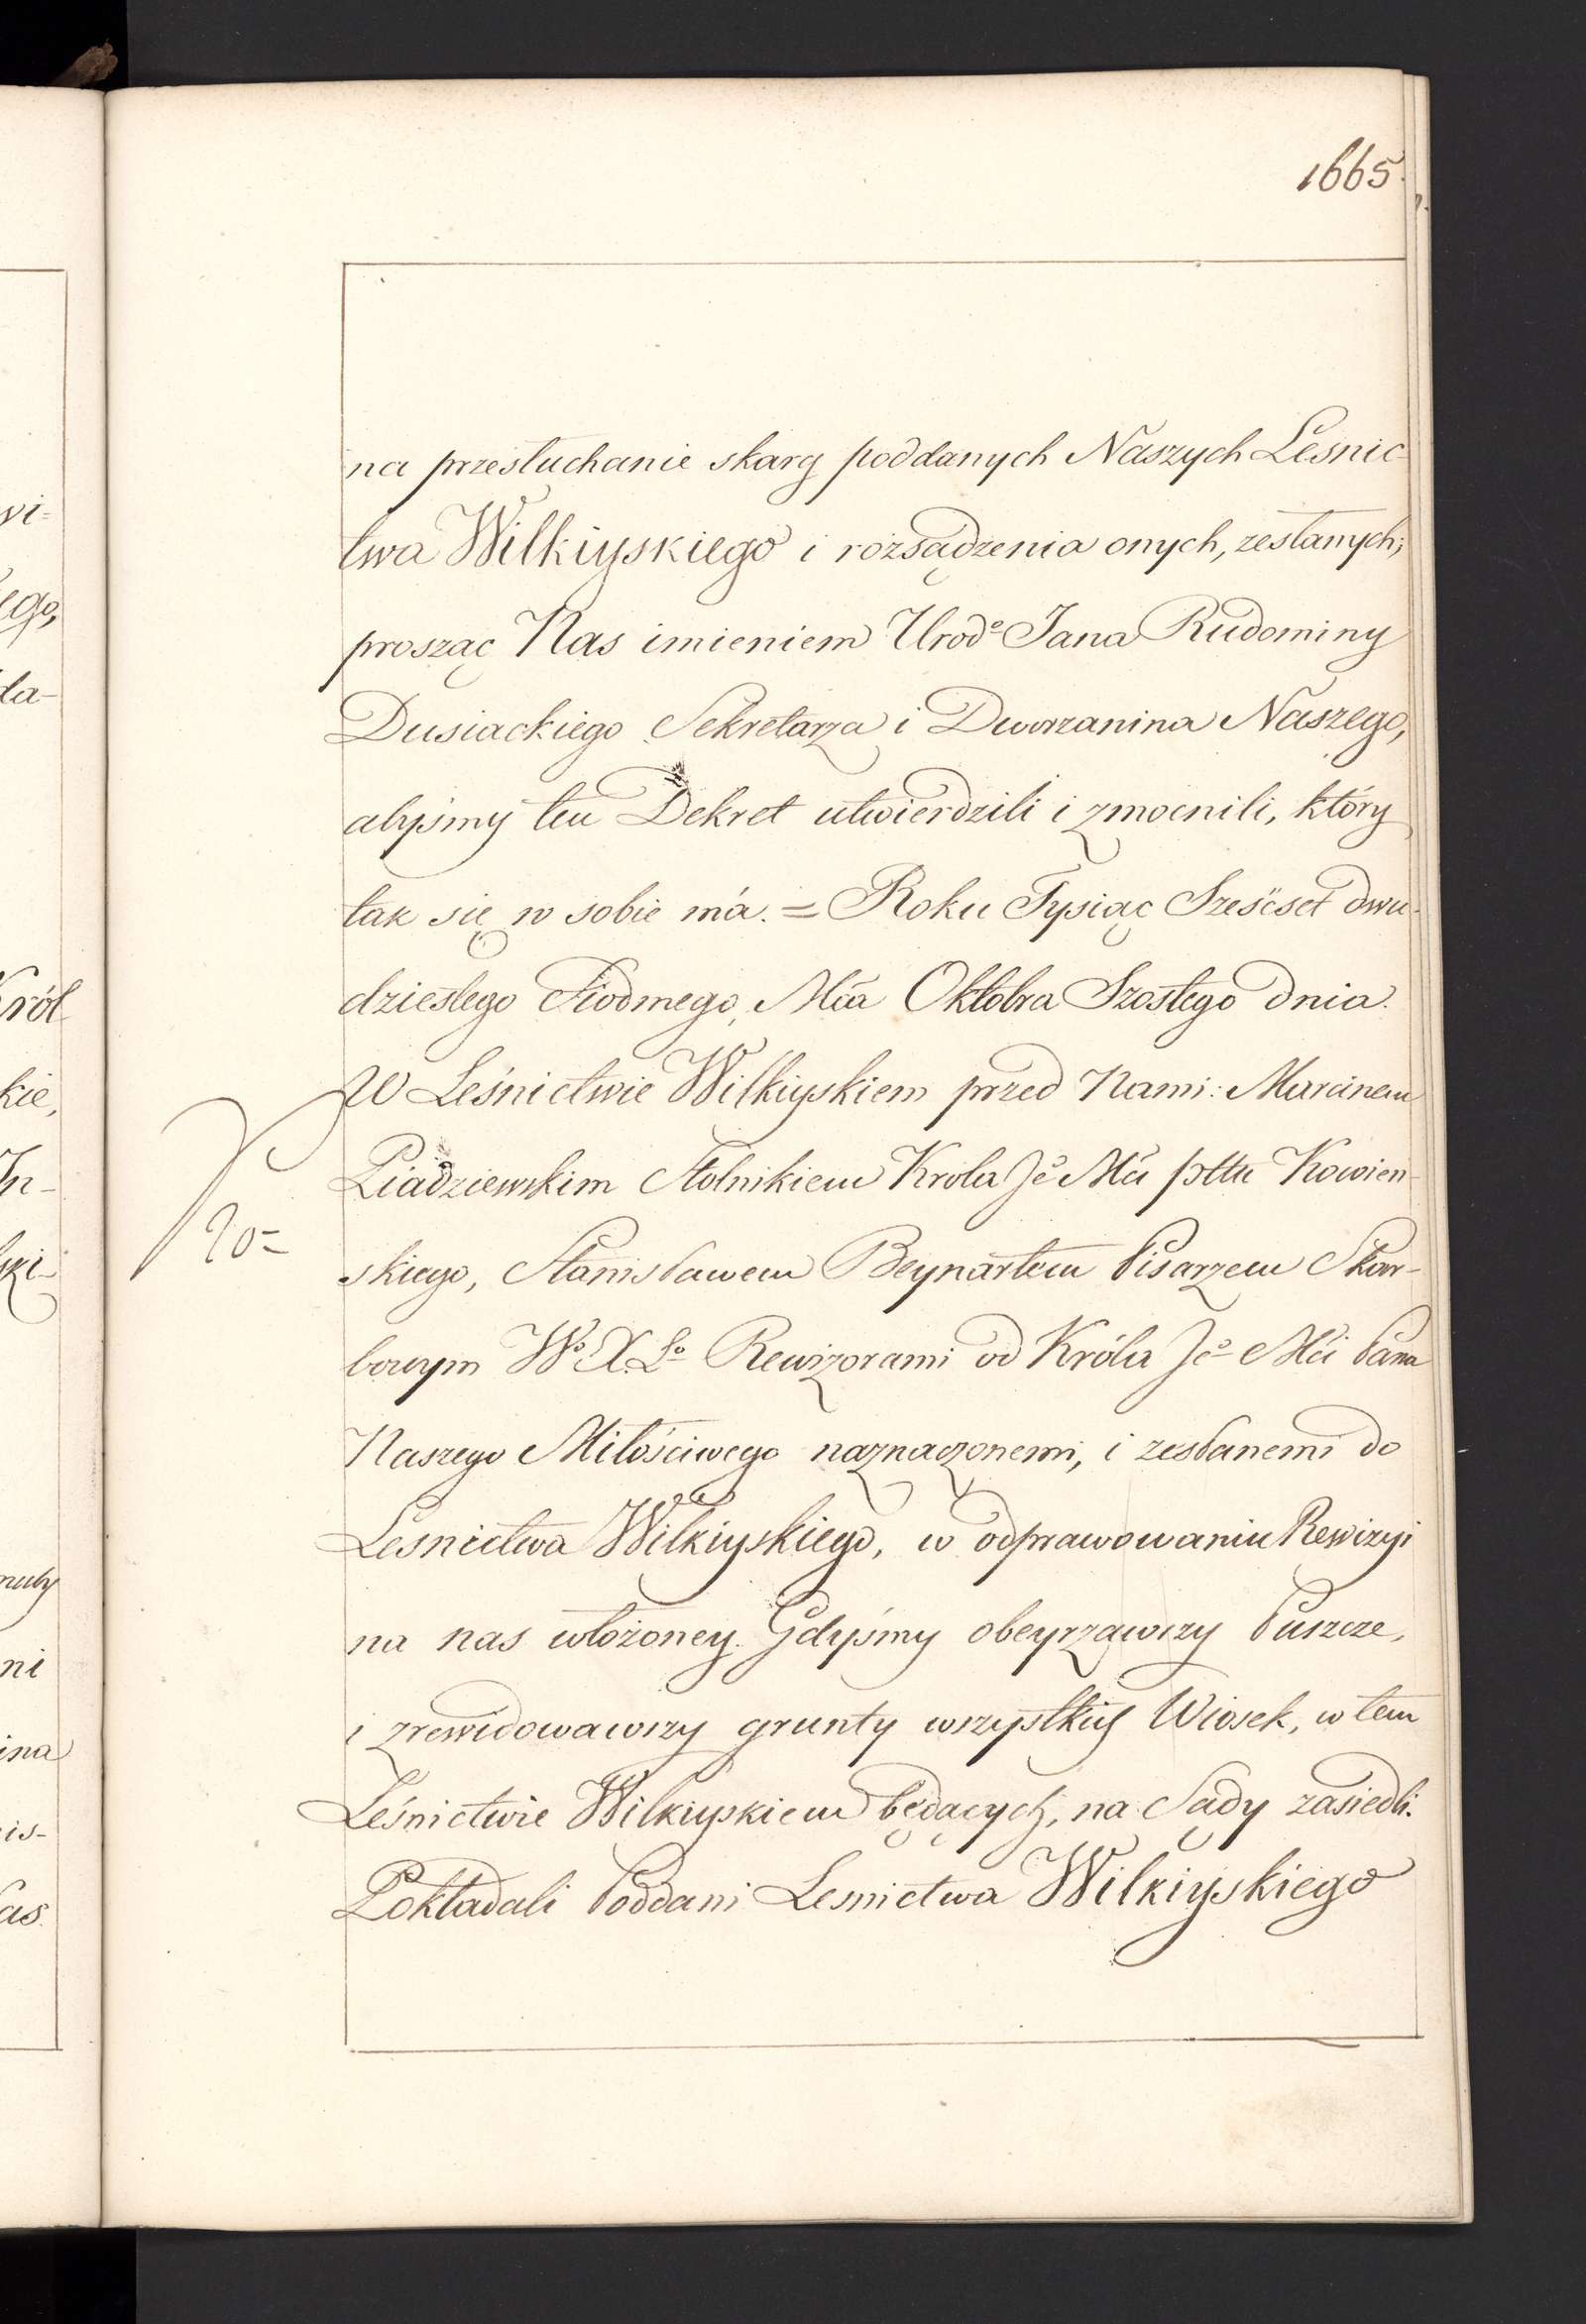 1665.
na przesłuchanie skarg poddanych Naszych Lesnic-
twa Wilkiyskiego i rozsądzenia onych, zesłanych;
prosząc Nas imieniem Urode Jana Rudominy
Dusiackiego Sekretarza i Dworzanina Naszego,
abyśmy ten Dekret utwierdzili i zmocnili, który
tak się w sobie má. = Roku Tysiąc Sześćset dwu-
dziestego Siodmego, Mca Oktobra Szostego dnia.
W Leśnictwie Wilkiyskiem przed Nami: Marcinem
Piadziewskim Stolnikiem Krola Jº Mći pttu Kowien-
skiego, Stanisławem Beynartem Pisarzem Skar-
bowym Wº X. Lº Rewizorami od Króla Jº Mći Pana
Naszego Miłościwego naznaczonemi, i zesłanemi do
Lesnictwa Wilkiyskiego, w odprawowaniu Rewizyi
na nas włożoney. Gdyśmy obeyrzawszy Puszcze,
i zrewidowawszy grunty wszystkich Wiosek, w tem
Leśnictwie Wilkiyskiem będących, na Sądy zasiedli.
Pokładali Poddani Lesnictwa Wilkiyskiego
wi=
ego,
da-
Król
kie,
In-
ski-
ni
ina
is-
as.